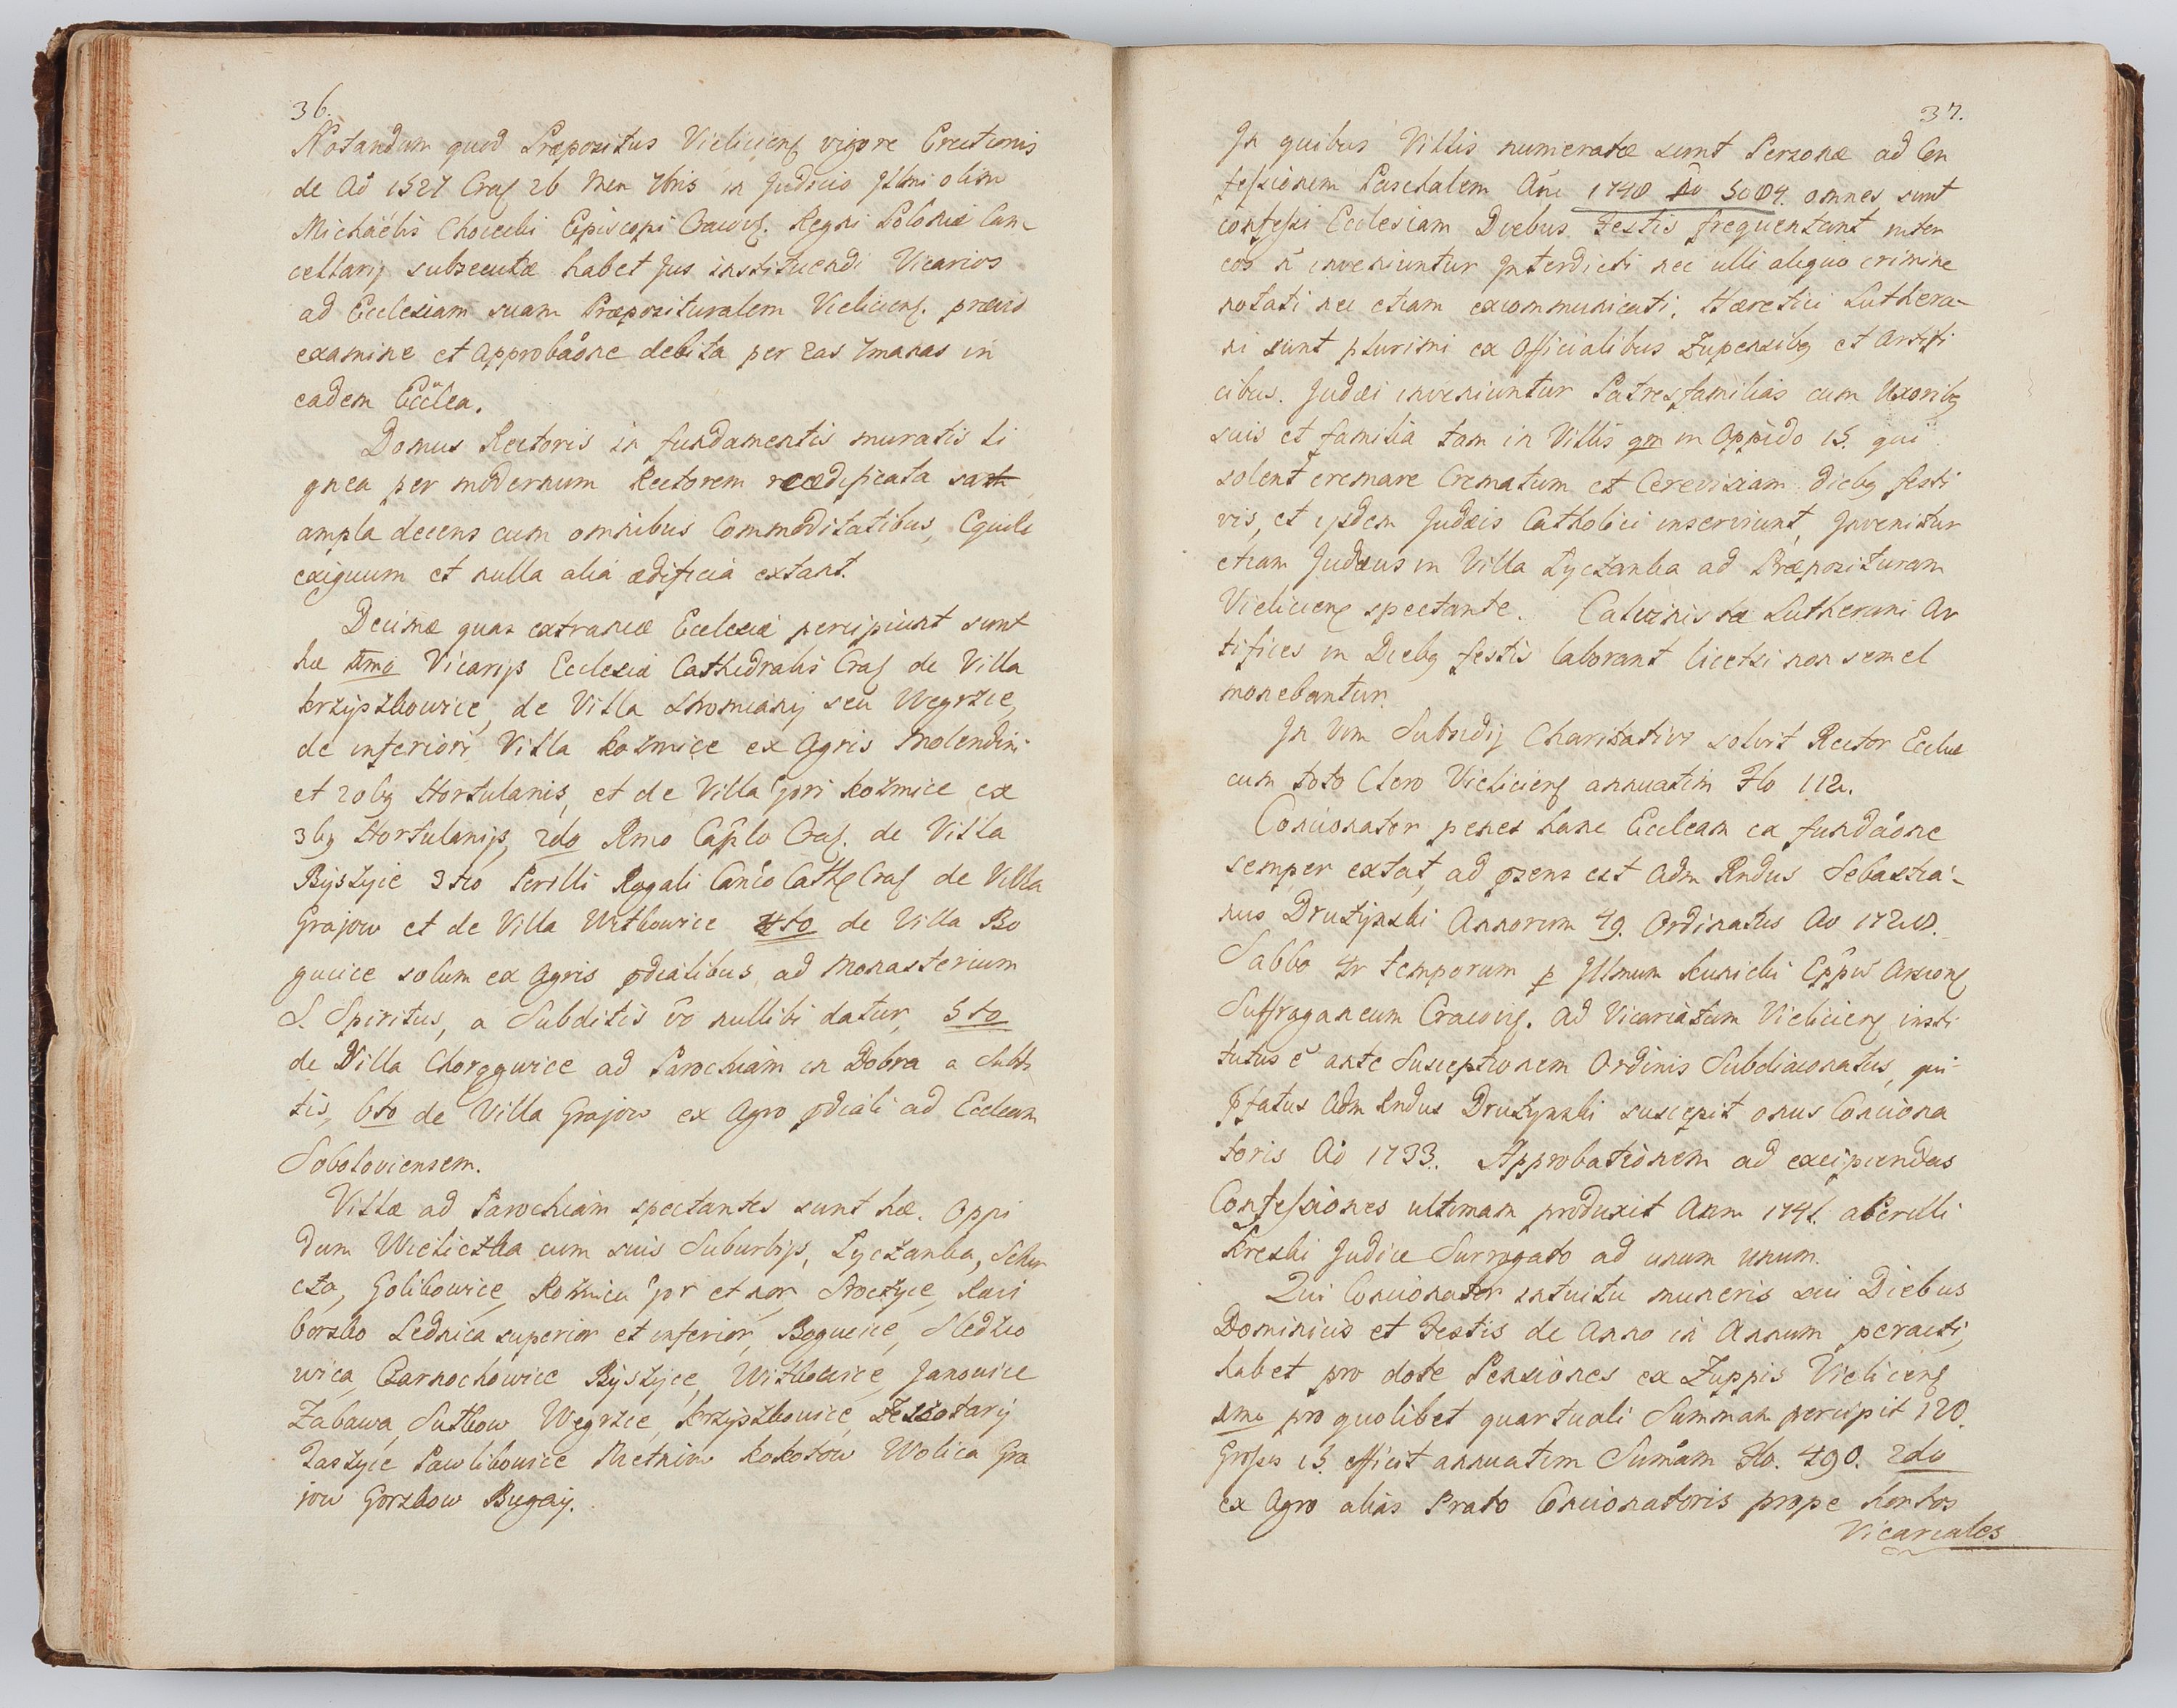 36.
Notandum quod Præpositus Vieliciens vigore Erectionis
de Aö 1527 Crac 26 Men 7bris in Judicio Jllmi olim
Michaëlis Choiecki Episcopi Cracovs. Regni Poloniæ Can-
cellarij subsecutæ habet Jus instituendi Vicarios
ad Ecclesiam suam Præposituralem Vieliciens. prævio
examine et Approbaöne debita per 2as 7manas in
eadem Ecclea.
Domus Rectoris in fundamentis muratis li
gnea per modernum Rectorem reædificata
ampla decens cum omnibus Commoditatibus, Equile
exiguum et nulla alia ædificia extant.
Decimæ quas extraneæ Ecclesiæ percipiunt sunt
hæ 1mo Vicarijs Ecclesiæ Cathedralis Crac de Villa
Krzyszkowice, de Villa Sromiany seu Wegrzce,
de inferiori Villa Kozmice ex Agris Molendini
et 20bq Hortulanis, et de Villa Spri Kozmice ex
3bq Hortulanijs, 2do Rmo Caplo Crac. de Villa
Byszyce 3tio Perilli Rogali Canco Cath Crac de Villa
Grajow et de Villa Witkowice 4to de Villa Bo
gucice solum ex Agris pdialibus ad Monasterium
S. Spiritus, a Subditis vo nullibi datur, 5to
de Villa Chorągwice ad Parochiam in Dobra a Subdi
tis, 6to de Villa Grajow ex Agro pdiali ad Eccleam
Soboloviensem.
Villæ ad Parochiam spectantes sunt hæ. Oppi
dum Wieliczka cum suis Suburbijs, Lyczanka,
cza, Golibowice, Kozmice Spr et nor Sroczyce, Raci
borsko Lednica superior et inferior, Bogucice, Sledzio
wica, Czarnochowice Byszyce, Witkowice, Janowice
Zabawa, Sutkow Wegrzce, Krzyszkowice,
Taszyce Pawlikowice Mietniow Kokotow Wolica Gra
jow Gorzkow Bugay.
37.
Jn quibus Villis numeratæ sunt Personæ ad Con
fessionem Paschalem Añi 1740 No 5004. omnes sunt
confessi Ecclesiam Diebus Festis frequentant inter
eos ñ inveniuntur Jnterdicti nec ulli aliquo crimine
notati nec etiam excommunicati. Hæretici Luthera-
ni sunt plurimi ex Officialibus Zupensibq et Artifi
cibus. Judæi inveniuntur Patresfamilias cum Uxoribq
suis et familia tam in Villis qm in Oppido 15. qui
solent cremare Crematum et Cerevisiam diebq festi
vis, et ijsdem Judæis Catholici inserviunt, Jnvenitur
etiam Judæus in Villa Lyczanka ad Præposituram
Vieliciens spectante. Calvinistæ Lutherani Ar
tifices in Diebq festis laborant licet si non semel
monebantur.
Jn Vim Subsidij Charitativi solvit Rector Eccliæ
cum toto Clero Vieliciens annuatim Flo 112.
Concionator penes hanc Eccleam ex fundaöne
semper extat, ad psens est Adm Rndus Sebastia-
nus Druzynski Annorum 49. Ordinatus Ao
Sabbo 4r Temporum p Jllmum Kunicki Eppum Arsions
Suffraganeum Cracovs. Ad Vicariatum Vieliciens insti
tutus ë ante Susceptionem Ordinis Subdiaconatus, qui
pfatus Adm Rndus Druzynski suscepit onus Conciona
toris Ao 1733. Approbationem ad excipiendas
Confessiones ultimam produxit Anm 1741. a Perilli
Kreski Judice Surrogato ad unum Unum.
Qui Concionator intuitu muneris sui Diebus
Dominicis et Festis de Anno in Annum peracti,
habet pro dote Pensiones ex Zuppis Vieliciens
1mo pro quolibet quartuali Summam percipit 120.
Grosses 15. efficit annuatim Sumam Flo. 490. 2do
ex Agro alias Prato Concionatoris prope Hortos
Vicariales